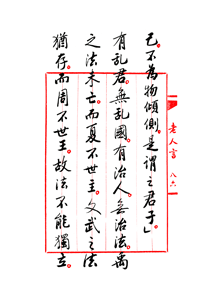 己。不為物傾側。是謂之君子」
有乱君。無乱國。有治人。無治法。禹
之法未亡。而夏不世王。文武之法
猶存。而周不世王。故法不能獨立。
老人言 八六